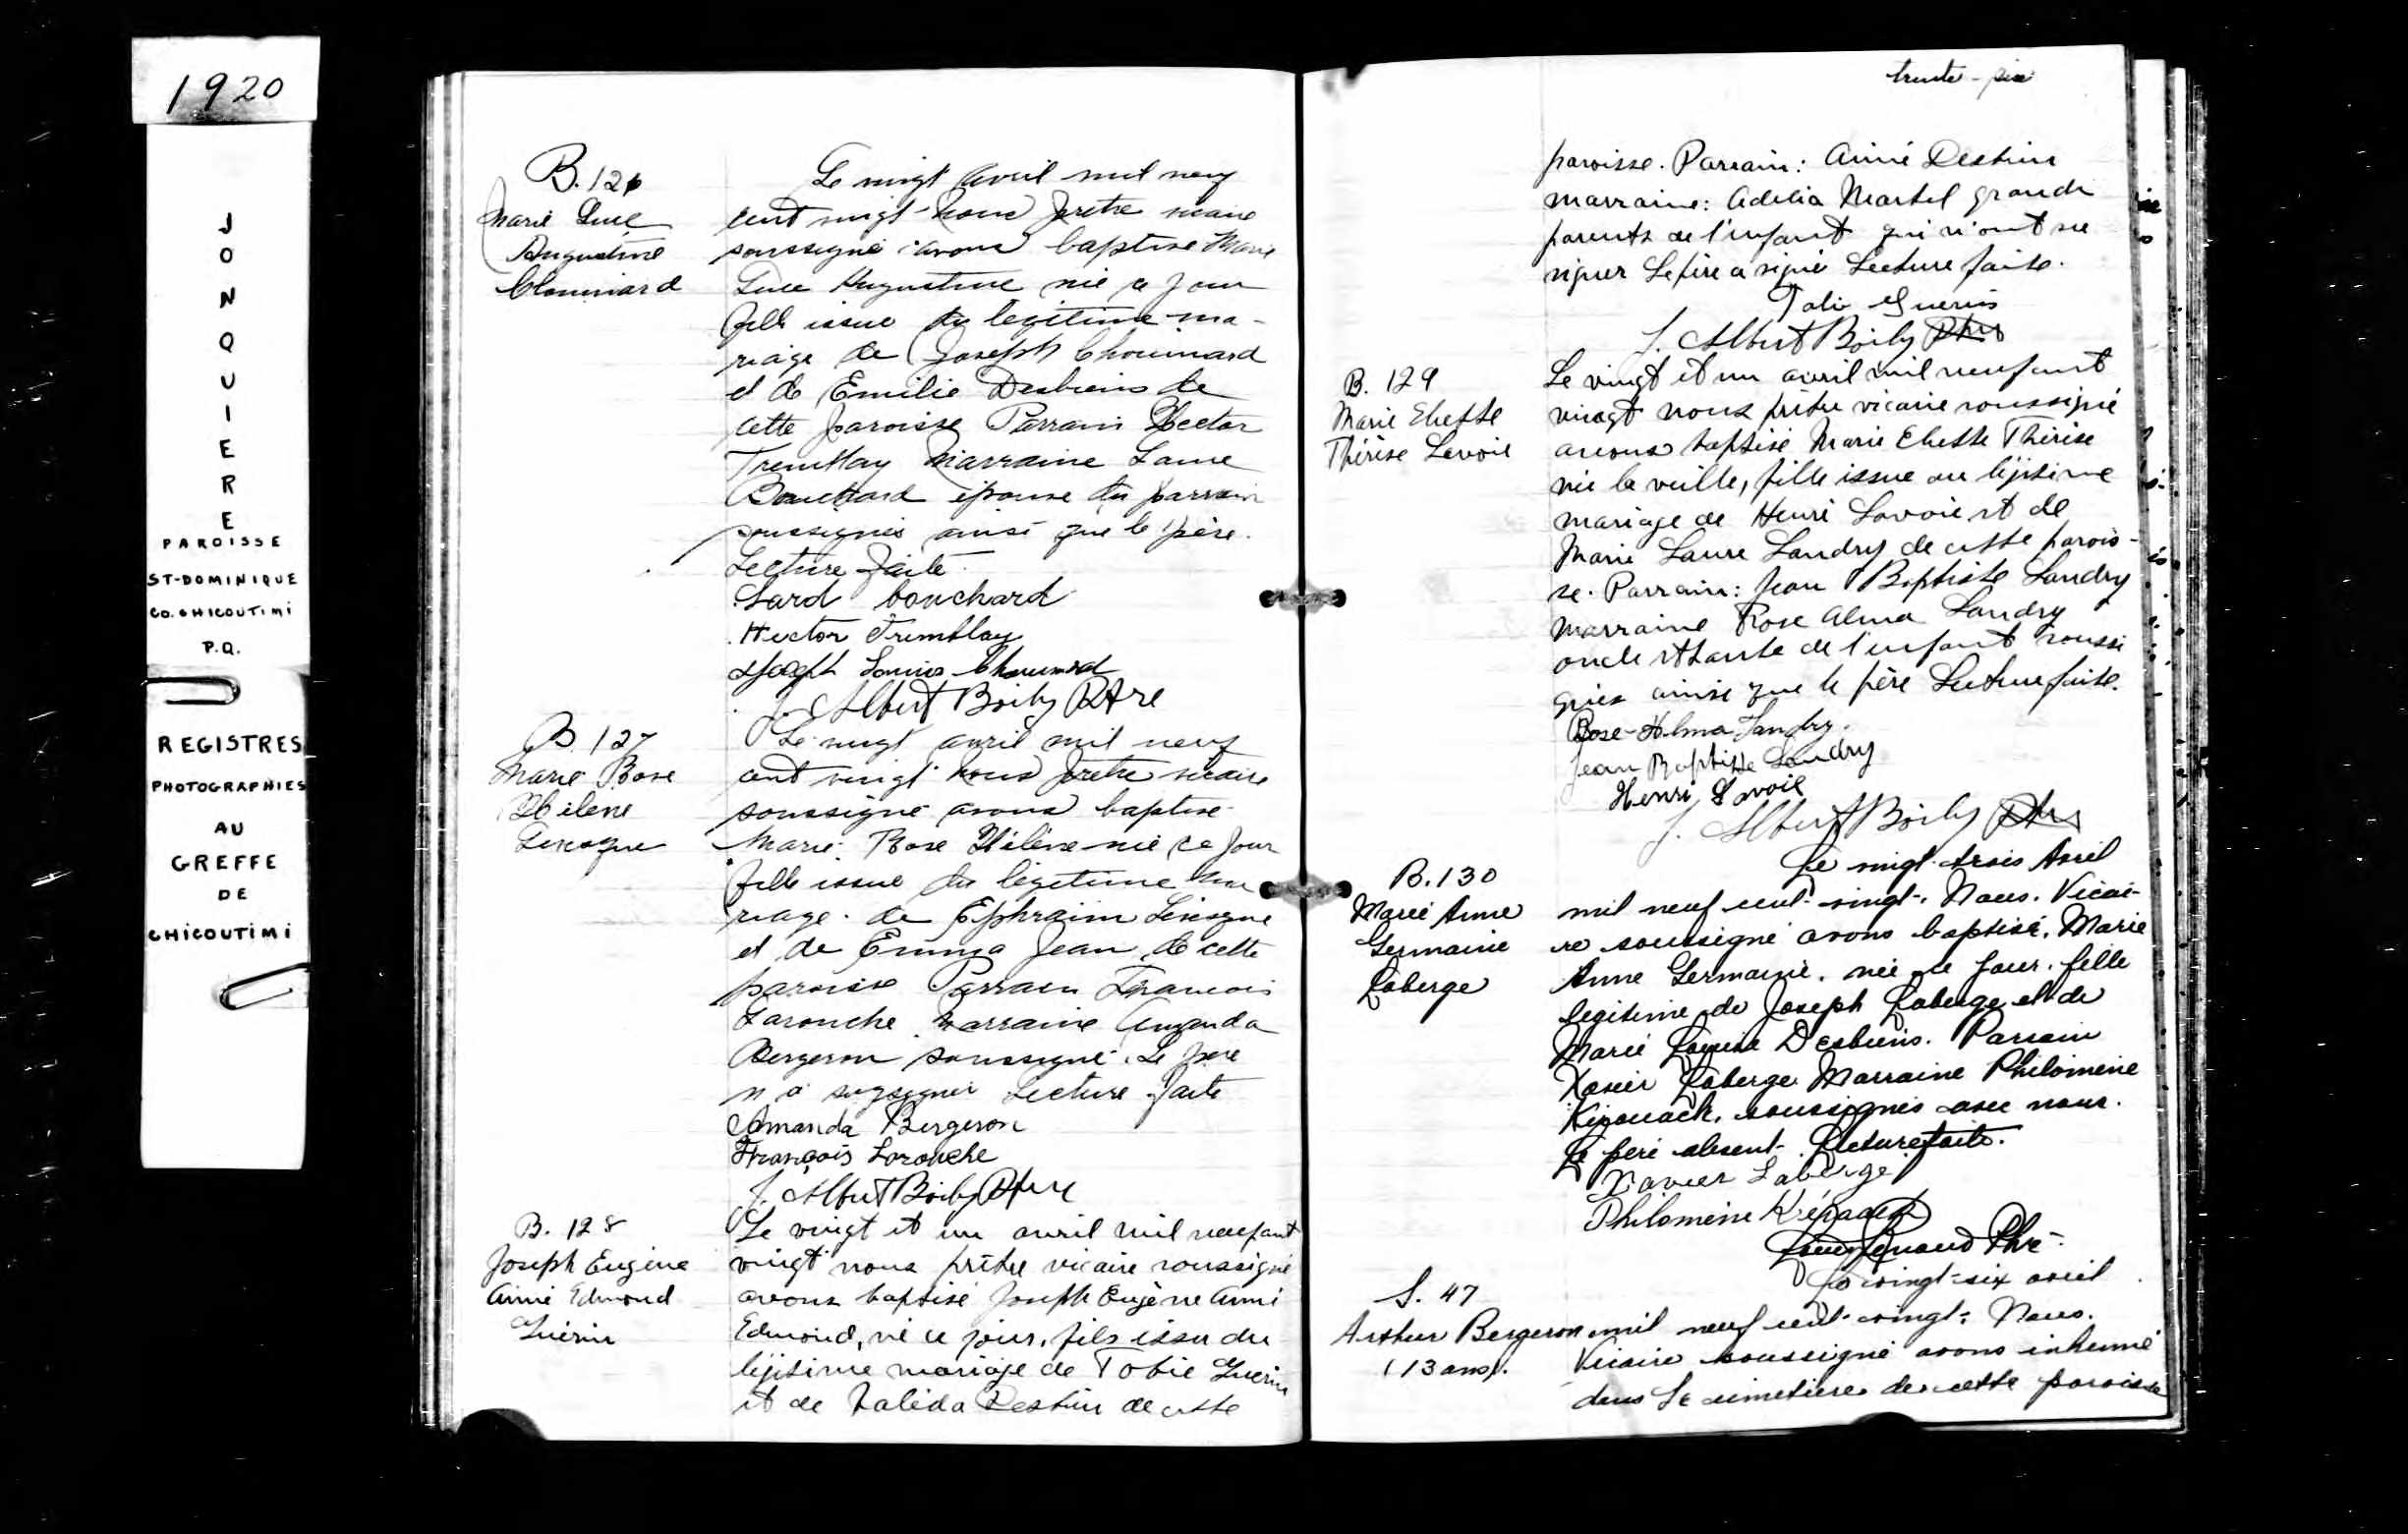 1920
JONQUIERE
PAROISSE
ST-DOMINIQUE
CO. CHICOUTIMI
P.Q.
REGISTRES
PHOTOGRAPHIES
AU
GREFFE
DE
CHICOUTIMI
B. 126
Marie Luce
Augustine
Chouinard
Le vingt Avril mil neuf
cent vingt nous prêtre vicaire
soussigné avons baptisé Marie
Luce Augustine née ce jour
fille issue du légitime ma-
riage de Joseph Chouinard
et de Emilie Desbiens de
cette paroisse Parrain Hector
Tremblay Marraine Laure
Bouchard épouse du parrain
soussignés ainsi que le père.
Lecture faite.
Lard bouchard
Hector Tremblay
Joseph Louis Chouinard
J. Albert Boily Ptre
B. 127
Marie Rose
Hélène
Levesque
Le vingt avril mil neuf
cent vingt nous prêtre vicaire
soussigné avons baptisé
Marie Rose Hélène née ce jour
fille issue du légitime ma
riage de Ephraim Lévesque
et de Emma Jean de cette
paroisse Parrain Francois
Larouche Marraine Amanda
Bergeron soussigné. Le père
n'a su signer Lecture faite
Amanda Bergeron
François Larouche
J. Albert Boily Ptre
B. 128
Joseph Eugène
Aimé Edmond
Guérin
Le vingt et un avril mil neuf cent
vingt nous prêtre vicaire soussigné
avons baptisé Joseph Eugène Aimé
Edmond, né ce jour, fils issu du
légitime mariage de Tobie Guérin
et de Valéda Desbien de cette
trente-six
paroisse. Parrain: Aimé Desbien
marraine: Adélia Martel grands
parents de l'enfant qui n'ont su
signer Le père a signé Lecture faite.
Tobie Guerin
J. Albert Boily Ptre
B. 129
Marie Elzette
Thérèse Lavoie
Le vingt et un avril mil neuf cent
vingt nous prêtre vicaire soussigné
avons baptisé Marie Elzette Thérèse
née la veille, fille issue du légitime
mariage de Henri Lavoie et de
Marie Laure Landry de cette parois-
se. Parrain: Jean Baptiste Landry
marraine Rose Alma Landry
oncle et tante de l'enfant soussi
gnés ainsi que le père Lecture faite.
Rose-Alma Landry.
Jean Baptiste Landry
Henri Lavoie
J. Albert Boily Ptre
B. 130
Marie Anne
Germaine
Laberge
Le vingt-trois Avril
mil neuf cent-vingt-, Nous. Vicai-
re soussigné avons baptisé, Marie
Anne Germaine, née ce jour, fille
legitime de Joseph Laberge et de
Marie Louise Desbiens. Parrain
Xavier Laberge Marraine Philomène
Kirouack, soussignés avec nous.
Le père absent. Lecture faite.
Xavier Laberge
Philomène Kérouack
Ptre
S. 47
Arthur Bergeron
(13 ans).
Le vingt-six avril
mil neuf cent-vingt-, Nous.
Vicaire soussigné avons inhumé
dans le cimetiere de cette paroisse